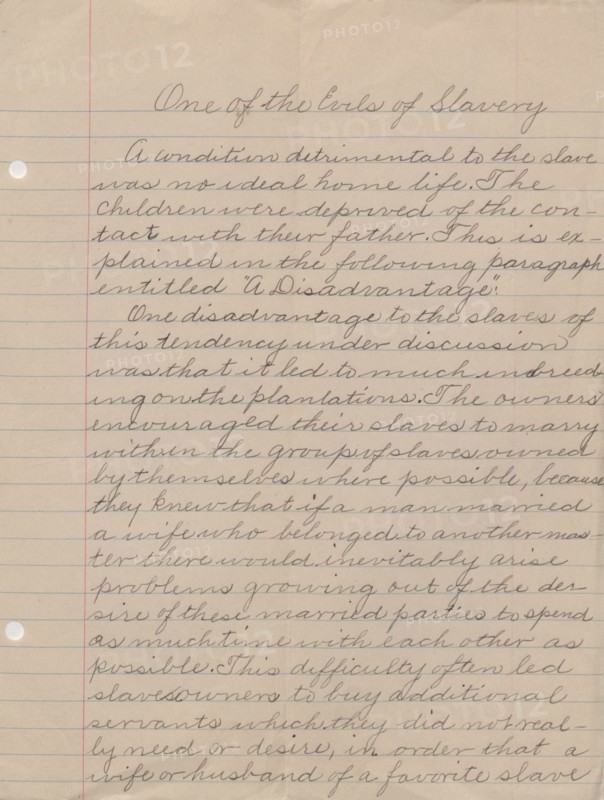 One of the Evils of Slavery
A condition detrimental to the slave
was no ideal home life. The
children were deprived of the con-
tact with their father. This is ex-
plained in the following paragraph
entitled "A Disadvantage":
One disadvantage to the slaves of
this tendency under discussion
was that it led to much inbreed-
ing on the plantations. The owners
encouraged their slaves to marry
within the group of slaves owned
by themselves where possible, because
they knew that if a man married
a wife who belonged to another mas-
ter there would inevitably arise
problems growing out of the de-
sire of these married parties to spend
as much time with each other as
possible. This difficulty often led
slaveowners to buy additional
servants which they did not real-
ly need or desire, in order that a
wife or husband of a favorite slave
PHOTO12